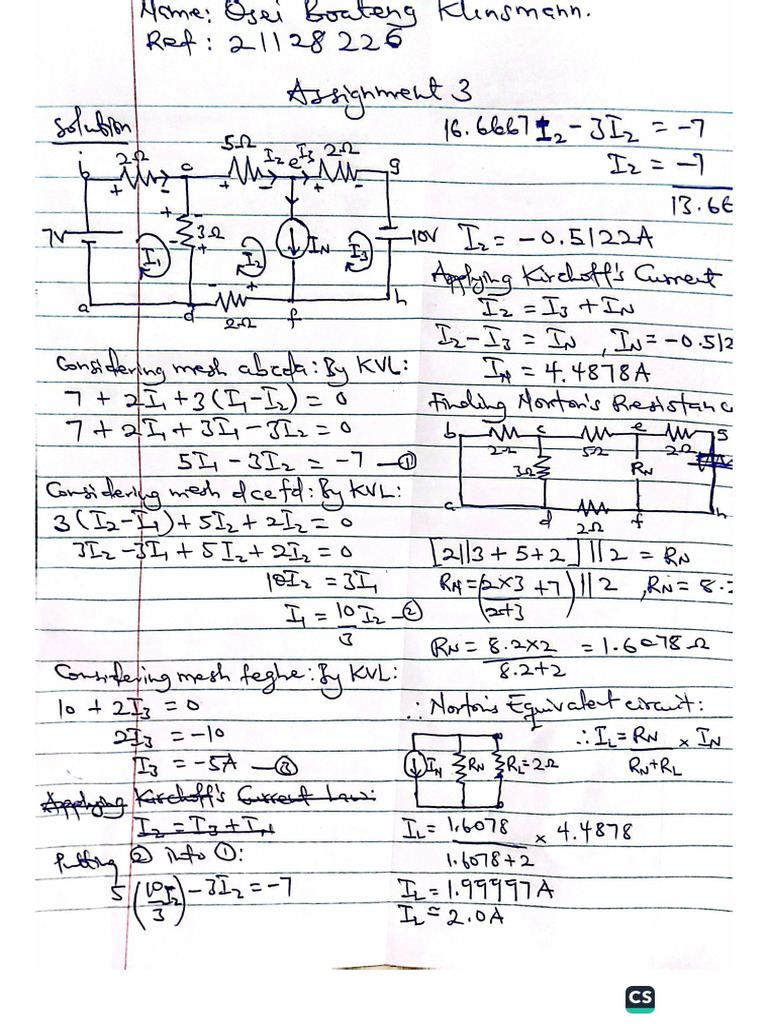 Name: Osei Boateng Klinsmann.
Ref: 21128226
Assignment 3
Solution
i
b 2Ω c 5Ω I₂ e I₃ 2Ω g
+ - + - + -
7V I₁ 3Ω I₂ I_N I₃ 10V
a d 2Ω f h
Considering mesh abcda: By KVL:
7 + 2I₁ + 3(I₁-I₂) = 0
7 + 2I₁ + 3I₁ - 3I₂ = 0
5I₁ - 3I₂ = -7 —①
Considering mesh dcefd: By KVL:
3(I₂-I₁) + 5I₂ + 2I₂ = 0
3I₂ - 3I₁ + 5I₂ + 2I₂ = 0
10I₂ = 3I₁
I₁ = 10/3 I₂ —②
Considering mesh feghe: By KVL:
10 + 2I₃ = 0
2I₃ = -10
I₃ = -5A —③
Applying Kirchoff's Current Law:
I₂ = I₃ + I_N
Putting ② into ①:
5(10/3 I₂) - 3I₂ = -7
16.6667I₂ - 3I₂ = -7
I₂ = -7
13.66
I₂ = -0.5122A
Applying Kirchoff's Current
I₂ = I₃ + I_N
I₂ - I₃ = I_N , I_N = -0.512
I_N = 4.4878A
Finding Norton's Resistanc
b 2Ω c 5Ω e 2Ω g
3Ω R_N
a d 2Ω f h
[2||3 + 5 + 2] || 2 = R_N
R_N = (2×3/2+3 + 7) || 2 , R_N = 8.2
R_N = 8.2×2/8.2+2 = 1.6078Ω
∴ Norton's Equivalent circuit:
I_N R_N R_L=2Ω
∴ I_L = R_N/R_N+R_L × I_N
I_L = 1.6078/1.6078+2 × 4.4878
I_L = 1.99997A
I_L ≃ 2.0A
CS